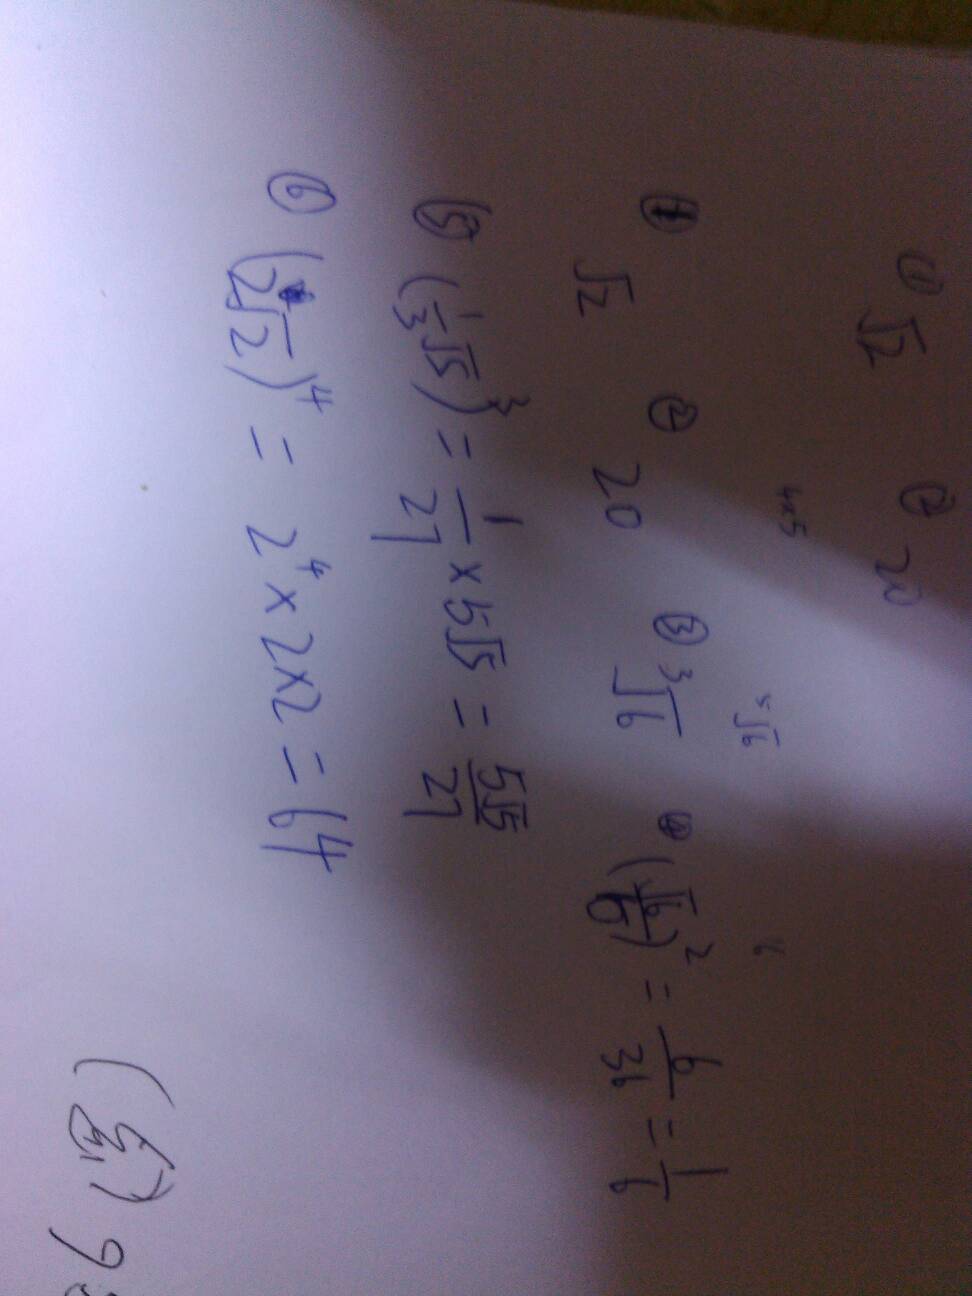 ① √2 ② 20
4×5 5√6 6
① √2 ② 20 ③ ³√6 (√6/6)² = 6/36 = 1/6
⑤ (1/3 √5)³ = 1/27 × 5√5 = 5√5/27
⑥ (2√2)⁴ = 2⁴ × 2×2 = 64